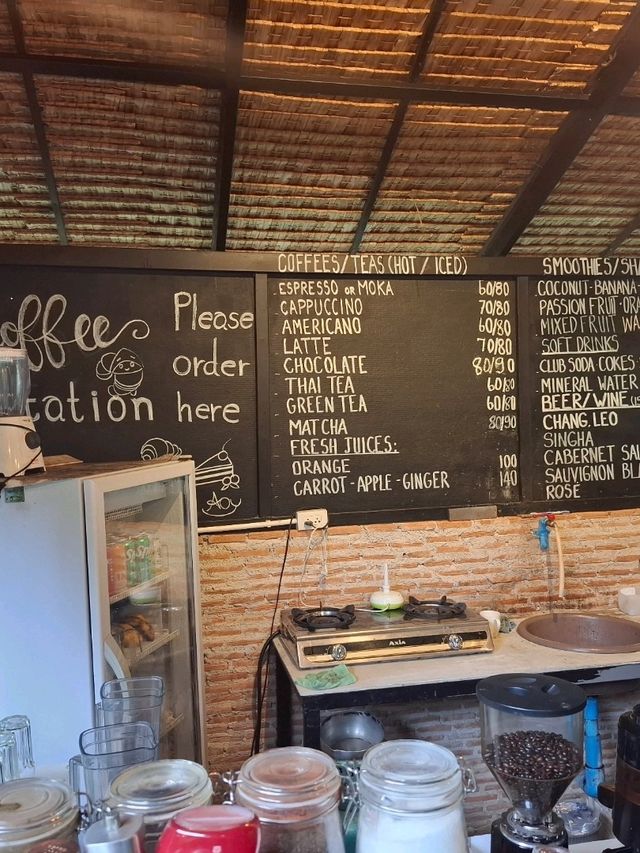 Please
order
here
COFFEES/TEAS (HOT / ICED)
ESPRESSO OR MOKA 60/80
CAPPUCCINO 70/80
AMERICANO 60/80
LATTE 70/80
CHOCOLATE 80/90
THAI TEA 60/80
GREEN TEA 60/80
MATCHA 80/90
FRESH JUICES:
ORANGE 100
CARROT-APPLE-GINGER 140
SMOOTHIES/SHA
COCONUT-BANANA-
PASSION FRUIT-OR
MIXED FRUIT WA
SOFT DRINKS
CLUB SODA-COKES
MINERAL WATER
BEER/WINE
CHANG. LEO
SINGHA
CABERNET SAU
SAUVIGNON BL
ROSE
Axia